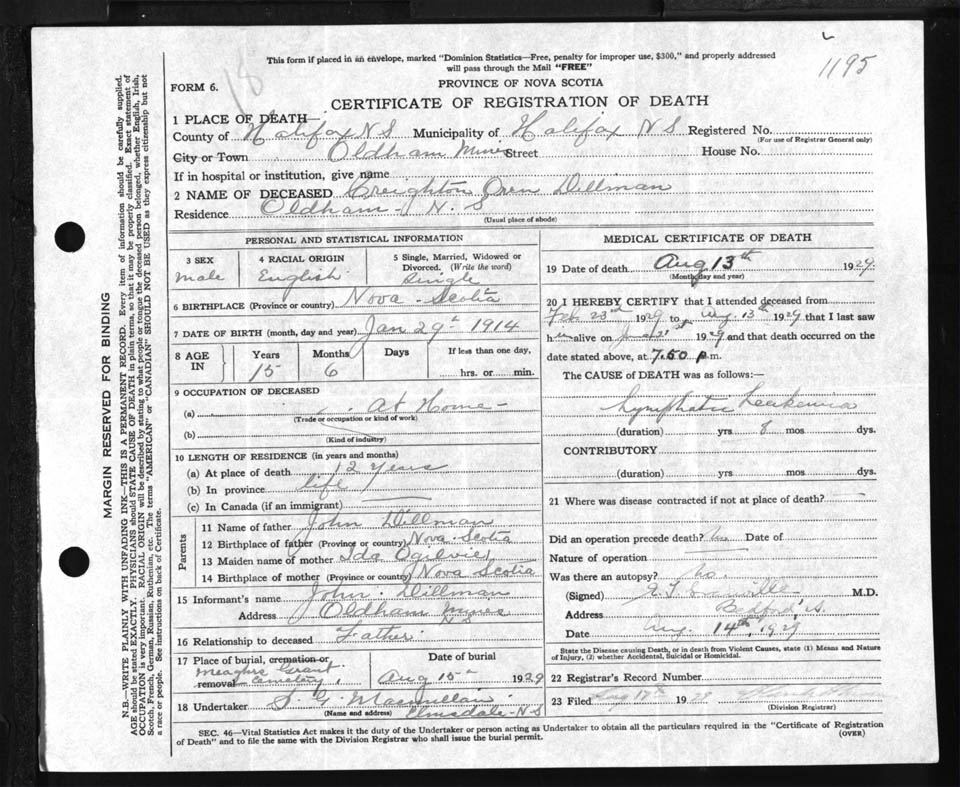 This form if placed in an envelope, marked "Dominion Statistics—Free, penalty for improper use, $300," and properly addressed
will pass through the Mail "FREE"
1195
18
FORM 6.
PROVINCE OF NOVA SCOTIA
CERTIFICATE OF REGISTRATION OF DEATH
1 PLACE OF DEATH—
County of Halifax N S Municipality of Halifax N S Registered No.
(For use of Registrar General only)
City or Town Oldham Mines Street House No.
If in hospital or institution, give name
2 NAME OF DECEASED Creighton Oren Dillman
Residence Oldham N. S
(Usual place of abode)
PERSONAL AND STATISTICAL INFORMATION
3 SEX male
4 RACIAL ORIGIN English
5 Single, Married, Widowed or Divorced. (Write the word) Single
6 BIRTHPLACE (Province or country) Nova Scotia
7 DATE OF BIRTH (month, day and year) Jan 29 1914
8 AGE IN Years 15 Months 6 Days If less than one day, hrs. or min.
9 OCCUPATION OF DECEASED
(a) At Home
(Trade or occupation or kind of work)
(b)
(Kind of industry)
10 LENGTH OF RESIDENCE (in years and months)
(a) At place of death 12 years
(b) In province life
(c) In Canada (if an immigrant)
Parents
11 Name of father John Dillman
12 Birthplace of father (Province or country) Nova Scotia
13 Maiden name of mother Ida Ogilvie
14 Birthplace of mother (Province or country) Nova Scotia
15 Informant's name John Dillman
Address Oldham Mines N S
16 Relationship to deceased Father
17 Place of burial, cremation or removal Meaghers Grant Cemetery
Date of burial Aug 15 1929
18 Undertaker
(Name and address) Elmsdale N S
MEDICAL CERTIFICATE OF DEATH
19 Date of death Aug 13th 1929
(Month, day and year)
20 I HEREBY CERTIFY that I attended deceased from
Feb. 23rd 1929 to Aug. 13th 1929 that I last saw
him alive on 1929 and that death occurred on the
date stated above, at 7.50 p.m.
The CAUSE of DEATH was as follows:—
Lymphatic Leukemia
(duration) yrs 8 mos dys.
CONTRIBUTORY
(duration) yrs. mos. dys.
21 Where was disease contracted if not at place of death?
Did an operation precede death? No Date of
Nature of operation
Was there an autopsy? No.
(Signed) M.D.
Address Bedford
Date Aug. 14th, 1929
State the Disease causing Death, or in death from Violent Causes, state (1) Means and Nature
of Injury, (2) whether Accidental, Suicidal or Homicidal.
22 Registrar's Record Number
23 Filed
(Division Registrar)
SEC. 46—Vital Statistics Act makes it the duty of the Undertaker or person acting as Undertaker to obtain all the particulars required in the "Certificate of Registration
of Death" and to file the same with the Division Registrar who shall issue the burial permit.
(OVER)
MARGIN RESERVED FOR BINDING
N.B.—WRITE PLAINLY WITH UNFADING INK—THIS IS A PERMANENT RECORD. Every item of information should be carefully supplied.
AGE should be stated EXACTLY. PHYSICIANS should STATE CAUSE OF DEATH in plain terms, so that it may be properly classified. Exact statement of
OCCUPATION is very important. RACIAL ORIGIN will be described by stating to what people or tongue the deceased person belonged, whether English, Irish,
Scotch, French, German, Russian, Ruthenian, etc. The terms "AMERICAN" or "CANADIAN" SHOULD NOT BE USED as they express citizenship but not
a race or people. See instructions on back of Certificate.